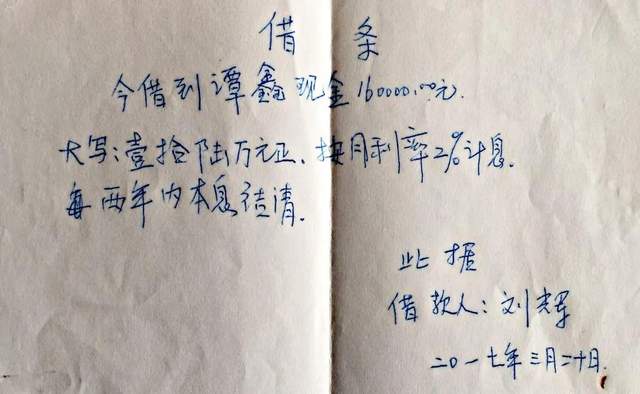 借条
今借到谭鑫现金160000.00元.
大写:壹拾陆万元正、按月利率2%计息.
每两年内本息结清.
此据
借款人:刘辉
二〇一七年三月二十日.